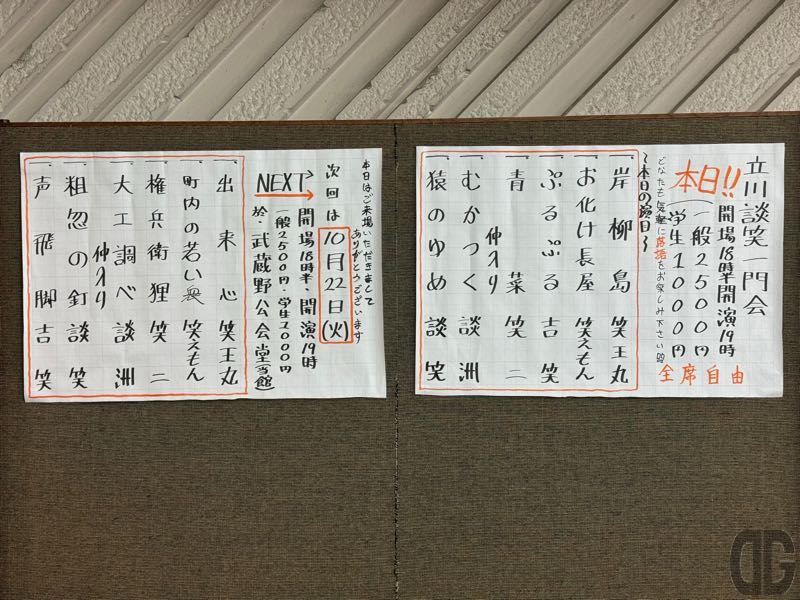 立川談笑一門会
本日!!
開場18時半開演19時
一般2500円
学生1000円
どなたも気軽に落語をお楽しみ下さい
全席自由
〜本日の演目〜
一、岸柳島 笑王丸
一、お化け長屋 笑えもん
一、ぷるぷる 吉笑
一、青菜 笑二
仲入り
一、むかつく 談洲
一、猿のゆめ 談笑
本日はご来場いただきまして
ありがとうございます
次回は10月22日(火)
NEXT
開場18時半・開演19時
一般2500円・学生1000円
於・武蔵野公会堂(当館)
一、出来心 笑王丸
一、町内の若い衆 笑えもん
一、権兵衛狸 笑二
一、大工調べ 談洲
仲入り
一、粗忽の釘 談笑
一、声飛脚 吉笑
DG